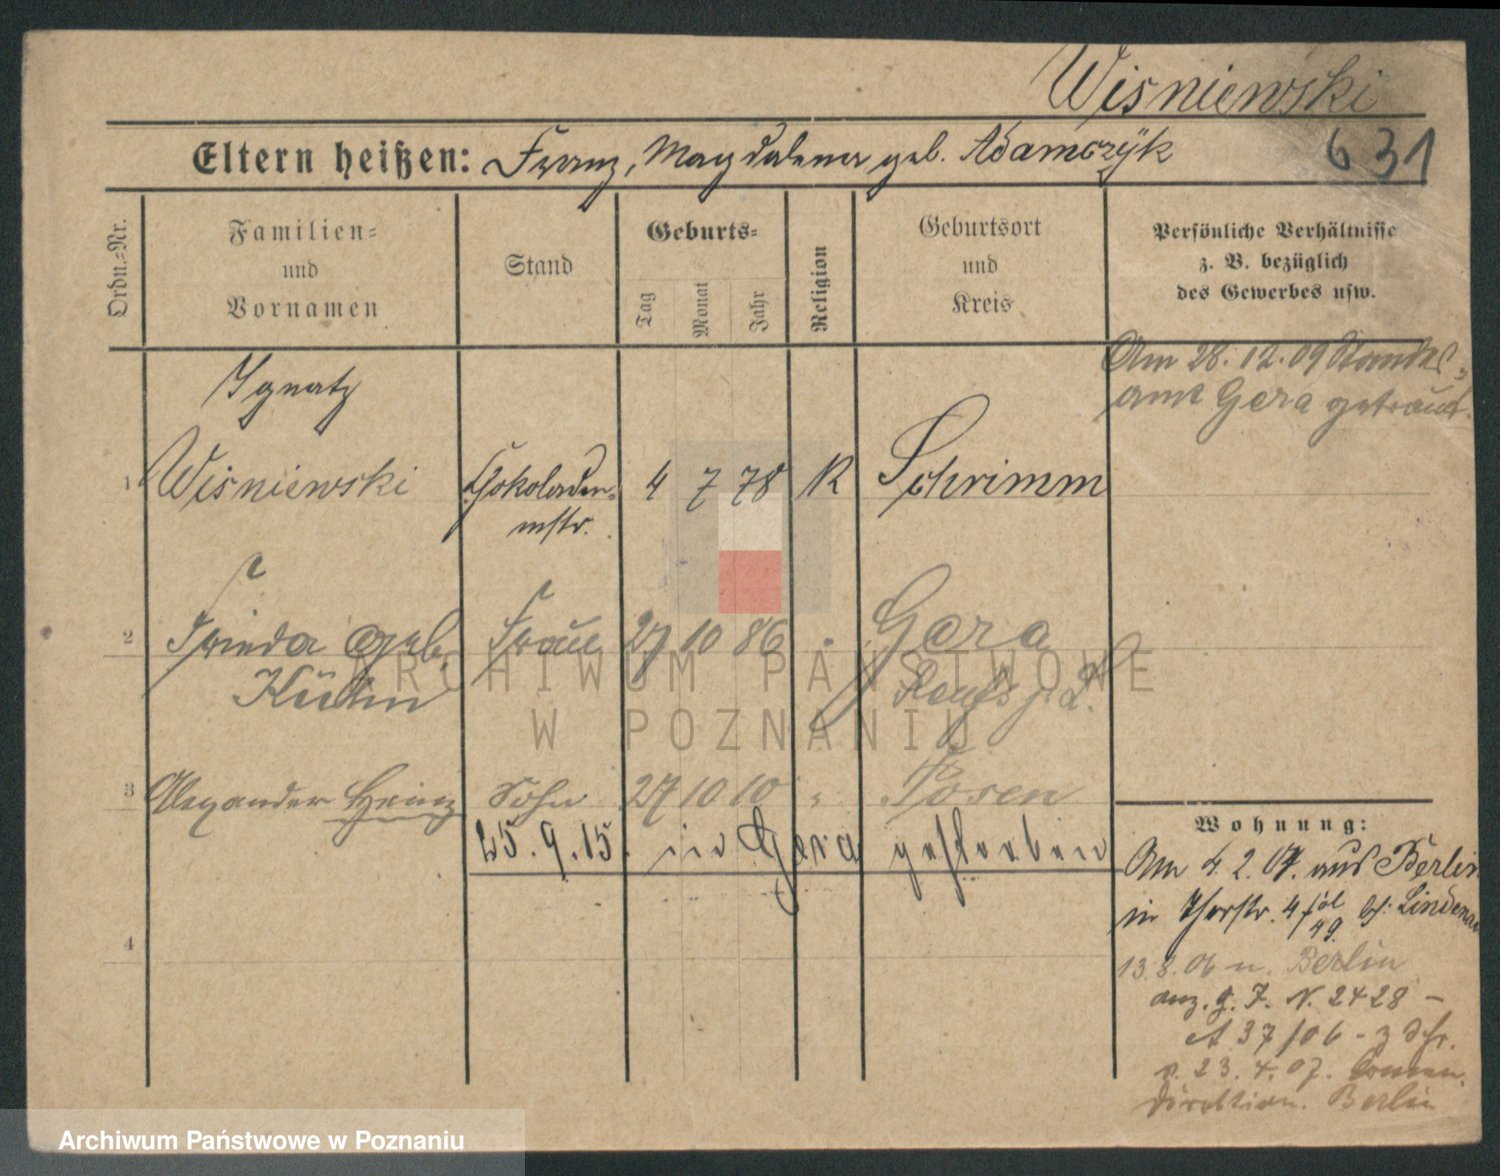 Wisniewski
Eltern heißen: Franz, Magdalena geb. Adamczÿk
631
Ordn.-Nr.
Familien-
und
Vornamen
Stand
Geburts-
Tag
Monat
Jahr
Religion
Geburtsort
und
Kreis
Persönliche Verhältnisse
z. B. bezüglich
des Gewerbes usw.
Am 28.12.09 Standes-
amt Gera getraut.
Ignatz
1 Wisniewski Chokoladen- 4 7 78 K Schrimm
mstr.
2 Frieda geb. Frau 27 10 86 Gera
Kühn Reuß j. L.
3 Alexander Heinz Sohn 27 10 10 " Posen
25.9.15. in Gera gestorben
4
Wohnung:
Am 4.2.07. aus Berlin
in 4 Lindenau
13.8.06 n. Berlin
anz. g. F. N. 2428 -
A 37/06 - z Schr.
v. 23.4.07.
direktion. Berlin
ARCHIWUM PAŃSTWOWE
W POZNANIU
Archiwum Państwowe w Poznaniu